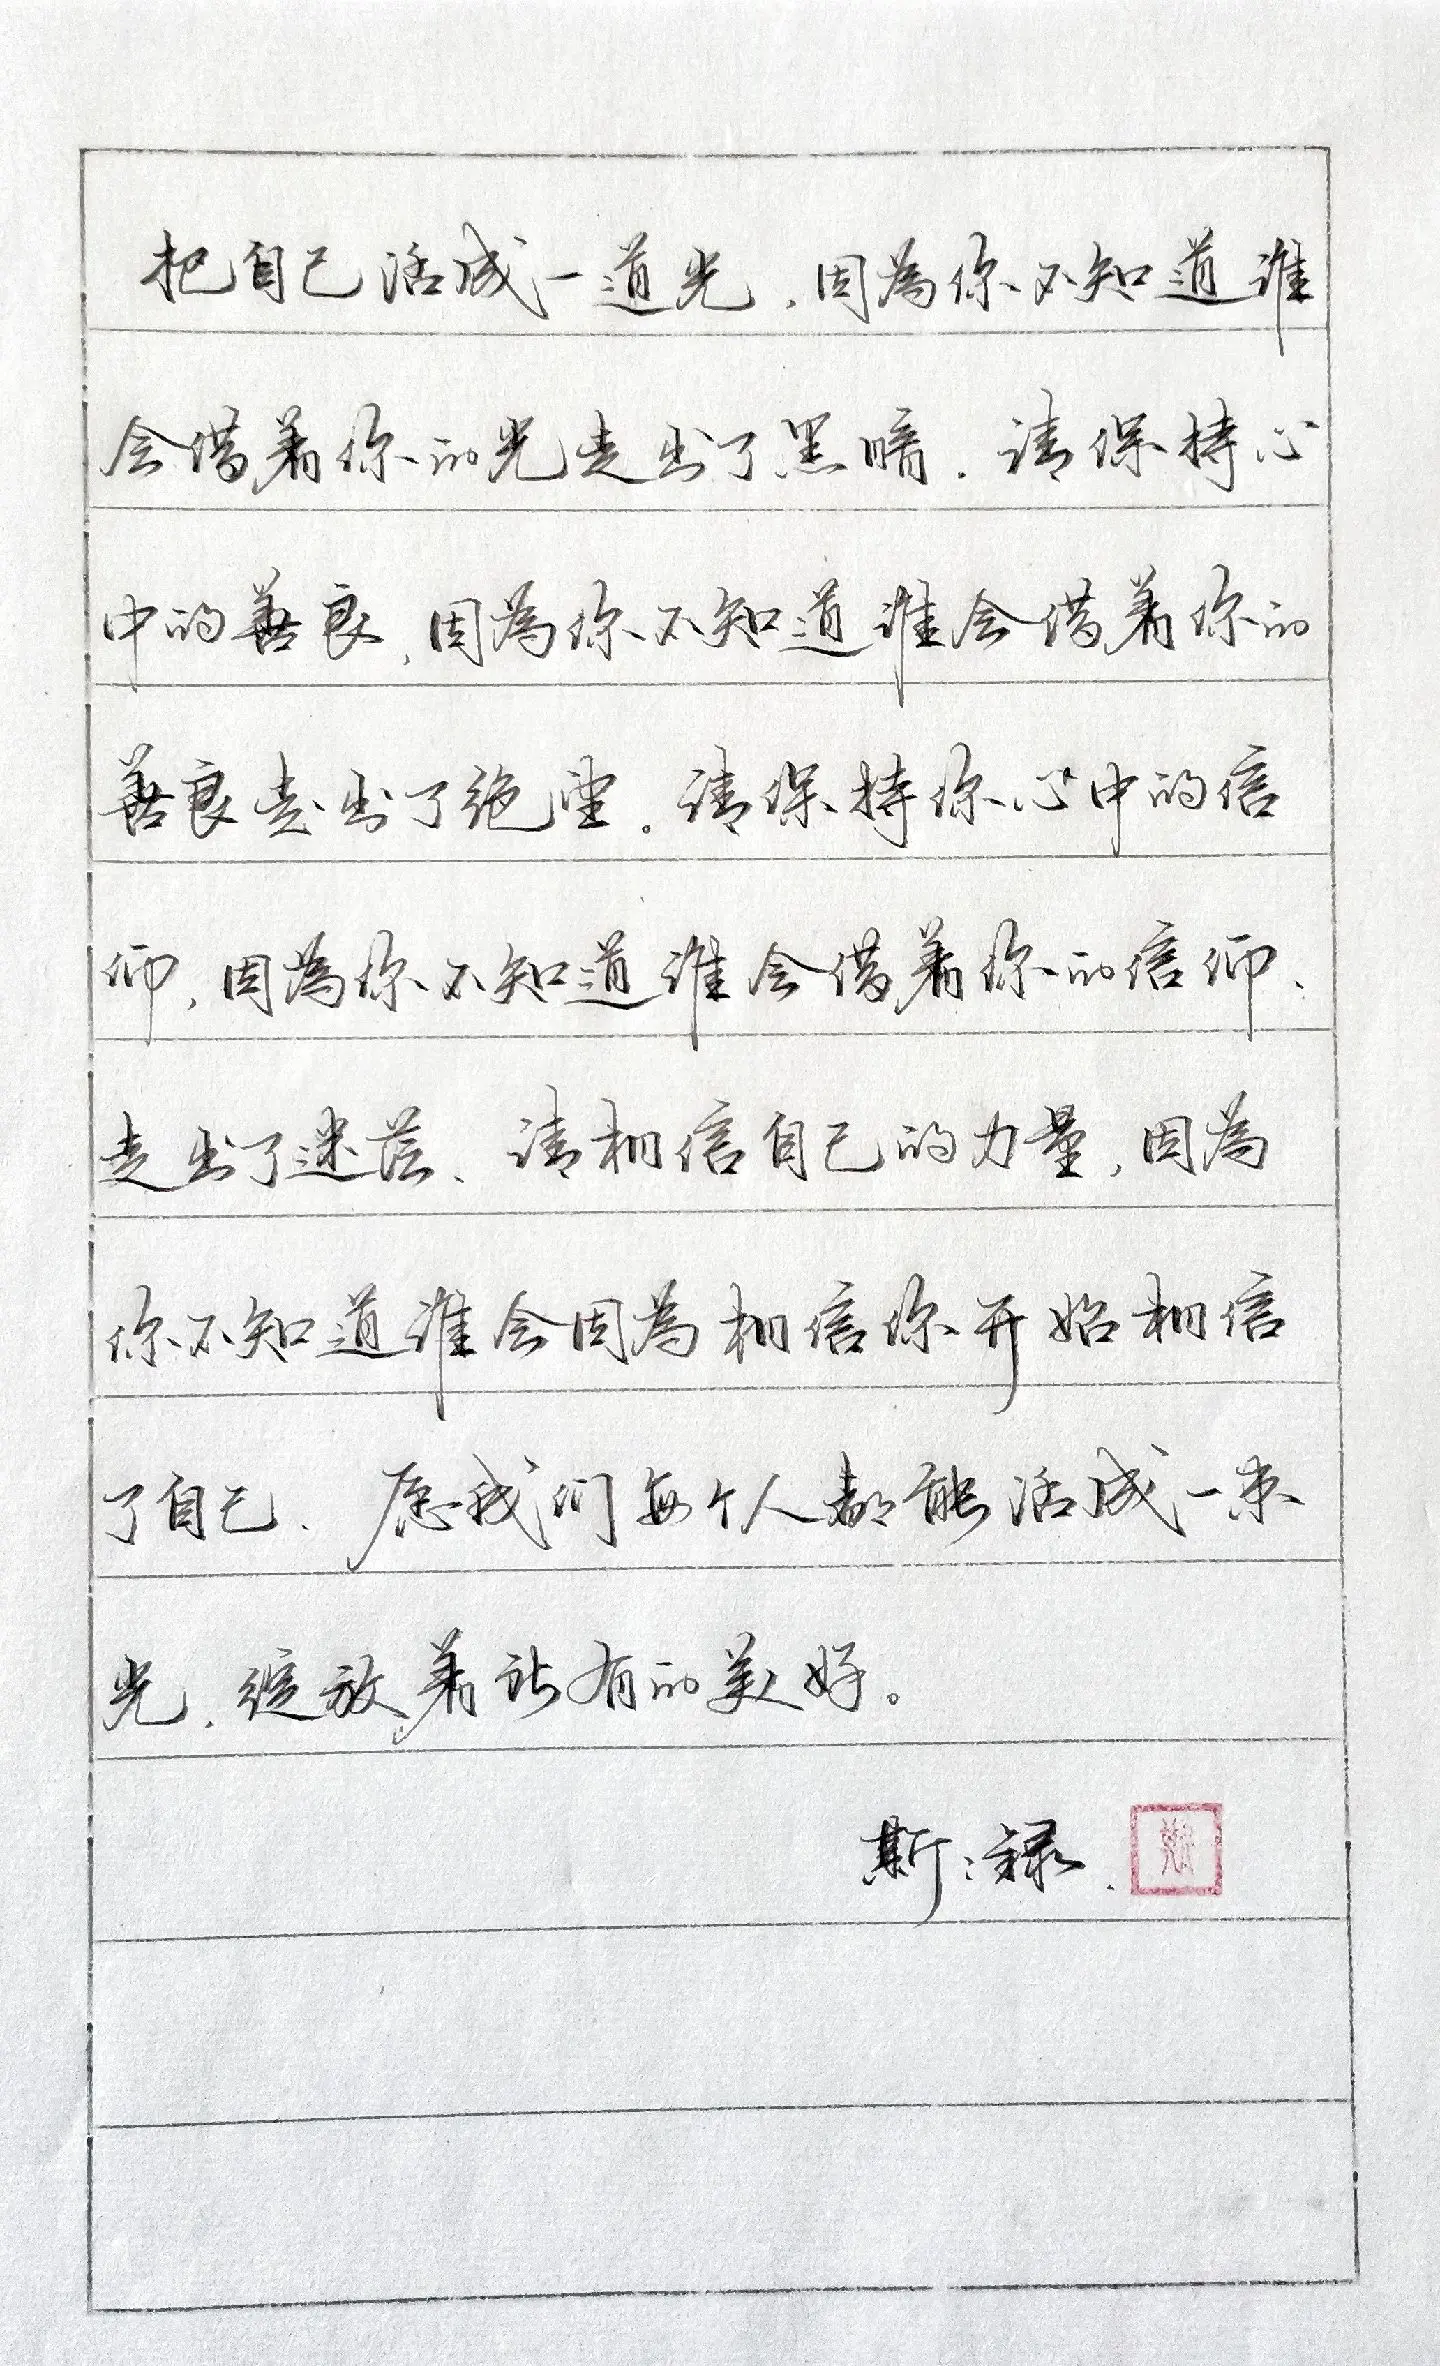 把自己活成一道光，因為你不知道谁
会借着你的光走出了黑暗．请保持心
中的善良，因為你不知道谁会借着你的
善良走出了绝望。请保持你心中的信
仰，因為你不知道谁会借着你的信仰、
走出了迷茫、请相信自己的力量，因為
你不知道谁会因為相信你开始相信
了自己．愿我们每个人都能活成一束
光．绽放着所有的美好。
斯 录．